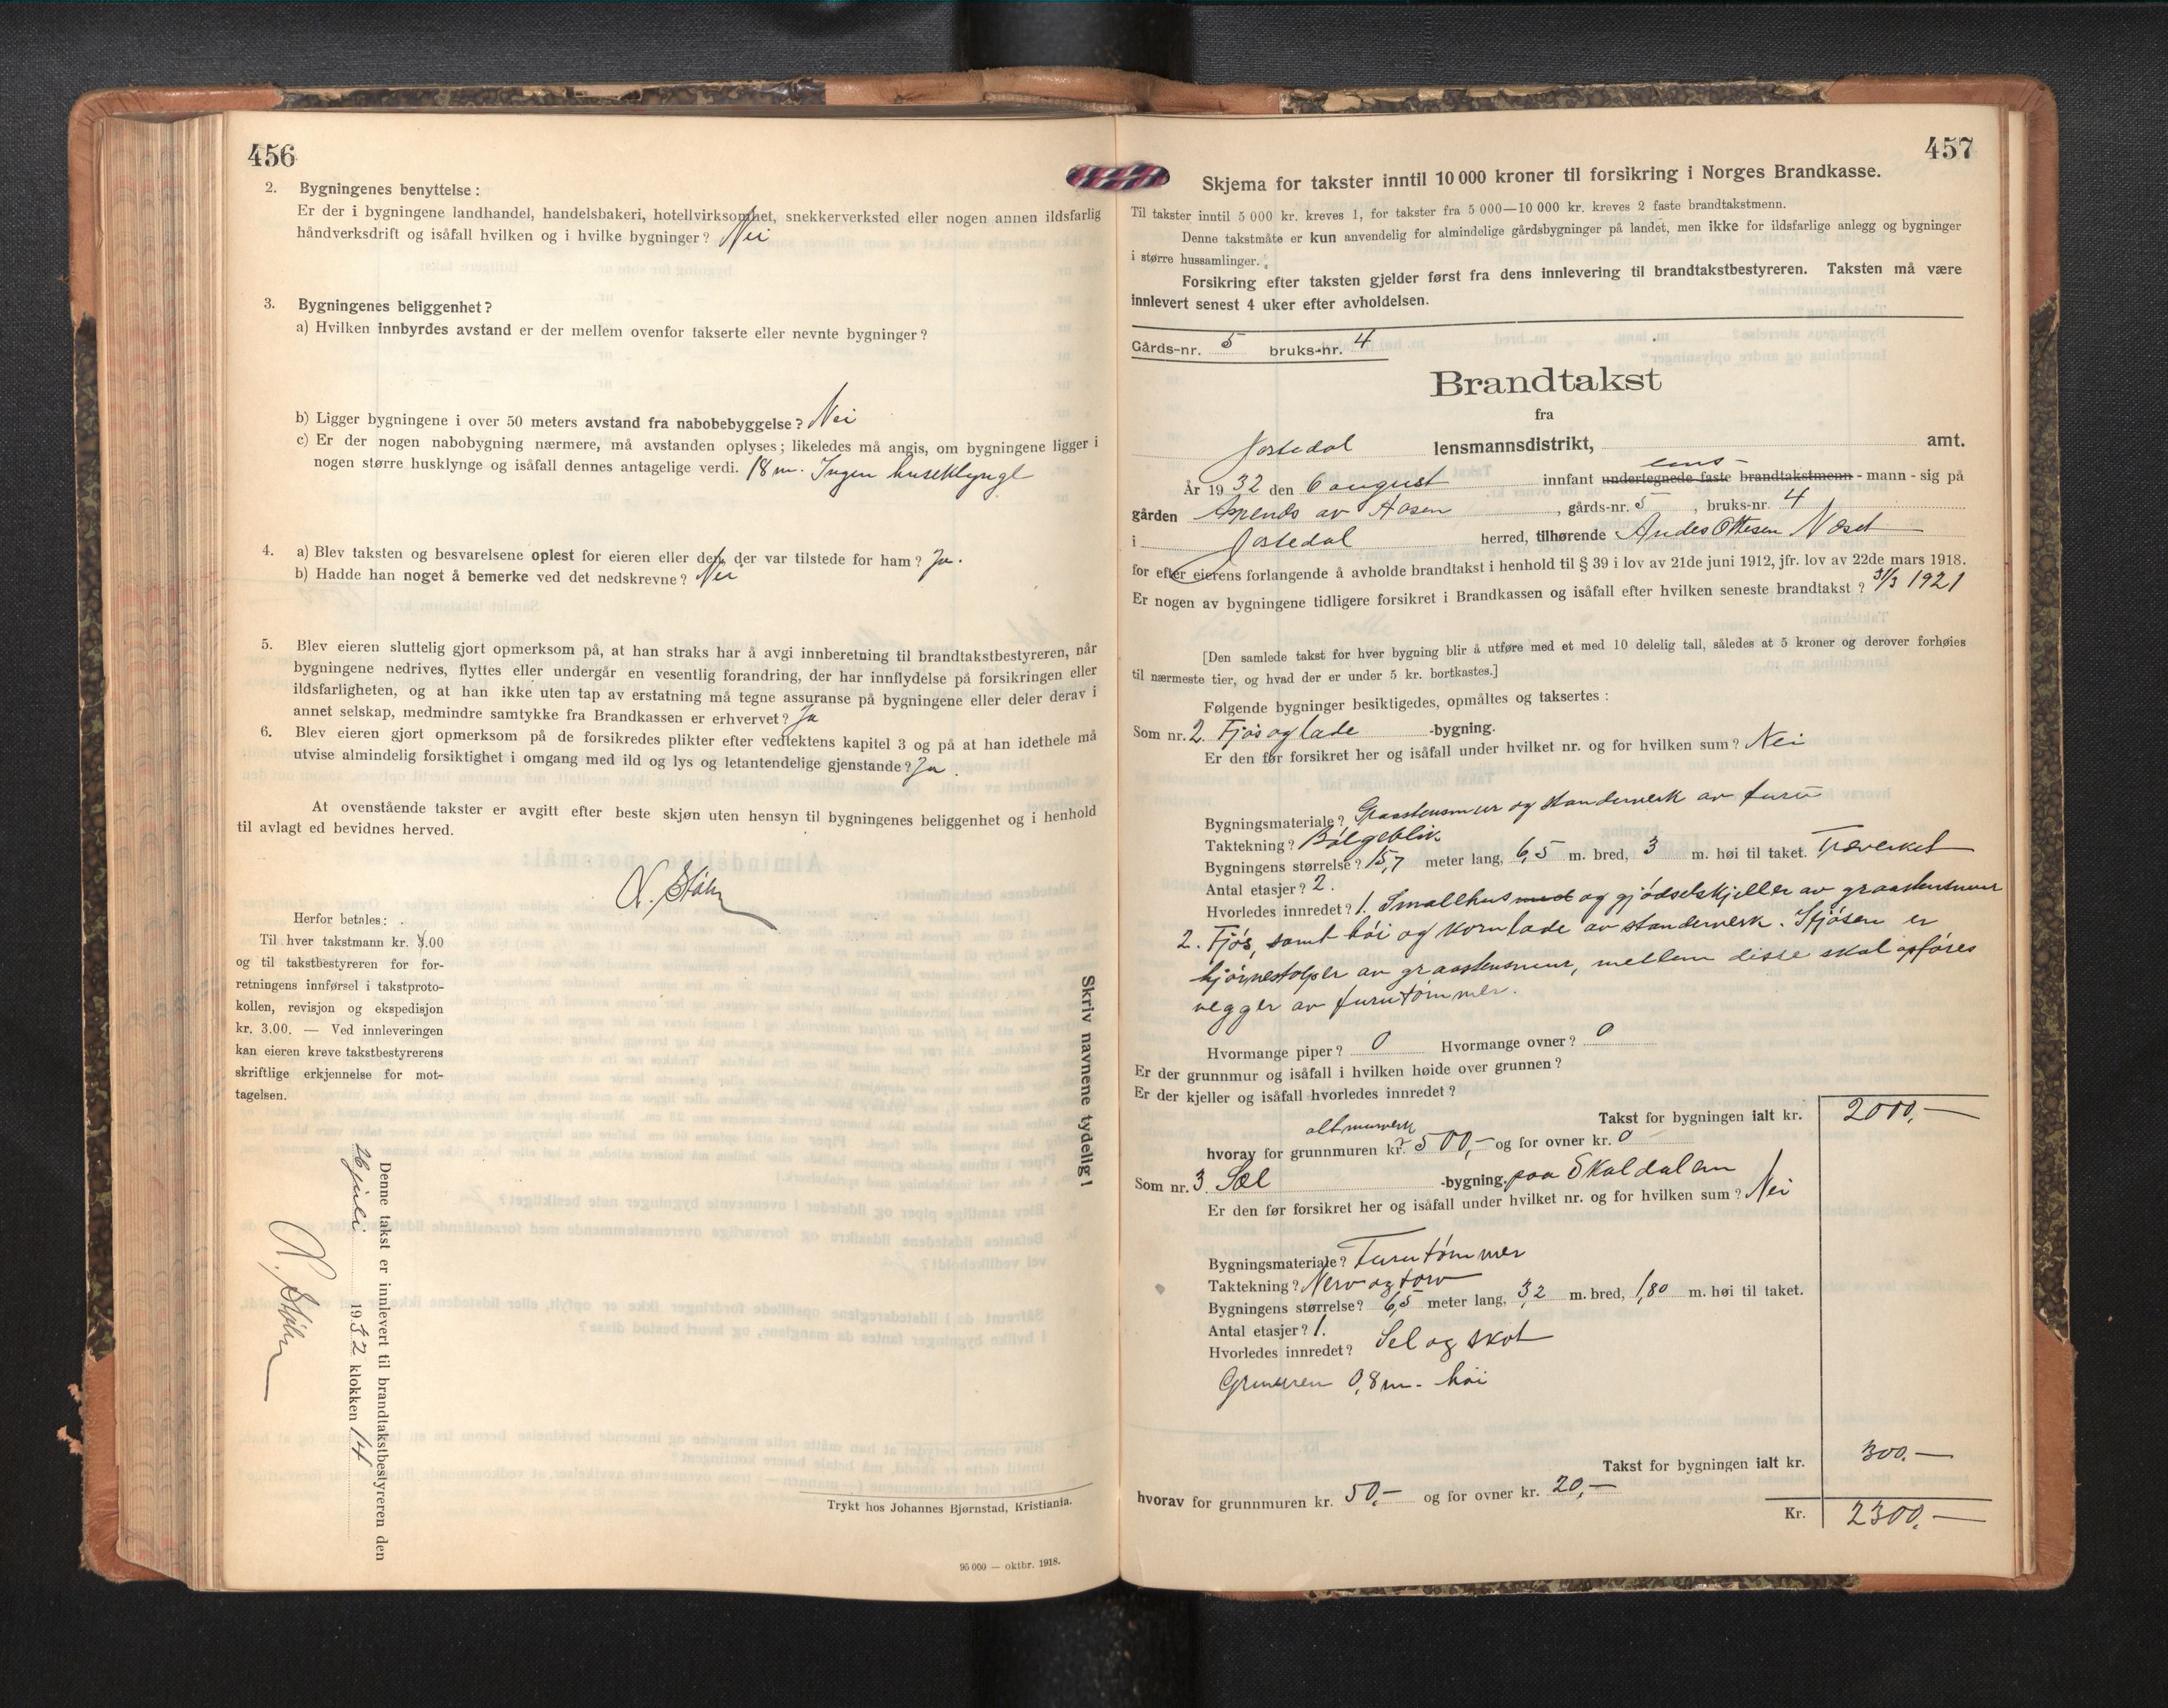 456
2. Bygningenes benyttelse:
Er der i bygningene landhandel, handelsbakeri, hotellvirksomhet, snekkerverksted eller nogen annen ildsfarlig
håndverksdrift og isåfall hvilken og i hvilke bygninger? Nei
3. Bygningenes beliggenhet?
a) Hvilken innbyrdes avstand er der mellem ovenfor takserte eller nevnte bygninger?
b) Ligger bygningene i over 50 meters avstand fra nabobebyggelse? Nei
c) Er der nogen nabobygning nærmere, må avstanden oplyses; likeledes må angis, om bygningene ligger i
nogen større husklynge og isåfall dennes antagelige verdi. 18 m. Ingen huseklynge
4. a) Blev taksten og besvarelsene oplest for eieren eller den, der var tilstede for ham? Ja.
b) Hadde han noget å bemerke ved det nedskrevne? Nei
5. Blev eieren sluttelig gjort opmerksom på, at han straks har å avgi innberetning til brandtakstbestyreren, når
bygningene nedrives, flyttes eller undergår en vesentlig forandring, der har innflydelse på forsikringen eller
ildsfarligheten, og at han ikke uten tap av erstatning må tegne assuranse på bygningene eller deler derav i
annet selskap, medmindre samtykke fra Brandkassen er erhvervet? Ja
6. Blev eieren gjort opmerksom på de forsikredes plikter efter vedtektens kapitel 3 og på at han idethele må
utvise almindelig forsiktighet i omgang med ild og lys og letantendelige gjenstande? Ja.
At ovenstående takster er avgitt efter beste skjøn uten hensyn til bygningenes beliggenhet og i henhold
til avlagt ed bevidnes herved.
Herfor betales:
Til hver takstmann kr. 3.00
og til takstbestyreren for for-
retningens innførsel i takstproto-
kollen, revisjon og ekspedisjon
kr. 3.00. — Ved innleveringen
kan eieren kreve takstbestyrerens
skriftlige erkjennelse for mot-
tagelsen.
Skriv navnene tydelig!
Denne takst er innlevert til brandtakstbestyreren den
26 juli 1932 klokken 14
Trykt hos Johannes Bjørnstad, Kristiania.
95 000 — oktbr. 1918.
457
Skjema for takster inntil 10 000 kroner til forsikring i Norges Brandkasse.
Til takster inntil 5 000 kr. kreves 1, for takster fra 5 000—10 000 kr. kreves 2 faste brandtakstmenn.
Denne takstmåte er kun anvendelig for almindelige gårdsbygninger på landet, men ikke for ildsfarlige anlegg og bygninger
i større hussamlinger.
Forsikring efter taksten gjelder først fra dens innlevering til brandtakstbestyreren. Taksten må være
innlevert senest 4 uker efter avholdelsen.
Gårds-nr. 5 bruks-nr. 4
Brandtakst
fra
Jostedal lensmannsdistrikt, amt.
lens-
År 1932 den 6 august innfant undertegnede faste brandtakstmenn - mann - sig på
gården av Aasen, gårds-nr. 5, bruks-nr. 4
i Jostedal herred, tilhørende Andes Ottesen Næset
for efter eierens forlangende å avholde brandtakst i henhold til § 39 i lov av 21de juni 1912, jfr. lov av 22de mars 1918.
Er nogen av bygningene tidligere forsikret i Brandkassen og isåfall efter hvilken seneste brandtakst? 31/3 1921
[Den samlede takst for hver bygning blir å utføre med et med 10 delelig tall, således at 5 kroner og derover forhøies
til nærmeste tier, og hvad der er under 5 kr. bortkastes.]
Følgende bygninger besiktigedes, opmåltes og taksertes:
Som nr. 2. Fjøs og lade -bygning.
Er den før forsikret her og isåfall under hvilket nr. og for hvilken sum? Nei
Bygningsmateriale? Graastensmur og standerverk av furu
Taktekning? Bølgeblik
Bygningens størrelse? 15,7 meter lang, 6,5 m. bred, 3 m. høi til taket. Træverket
Antal etasjer? 2.
Hvorledes innredet? 1. Smallhus med og gjødselskjeller av graastensmur
2. Fjøs, samt høi og kornlade av standerverk. I fjøsen er
hjørnestolper av graastensmur, mellem disse skal opføres
vegger av furutømmer.
Hvormange piper? 0 Hvormange ovner? 0
Er der grunnmur og isåfall i hvilken høide over grunnen?
Er der kjeller og isåfall hvorledes innredet?
Takst for bygningen ialt kr. 2000,—
alt murverk
hvorav for grunnmuren kr. 500,— og for ovner kr. 0
Som nr. 3. Sæl -bygning. paa Skaldalen
Er den før forsikret her og isåfall under hvilket nr. og for hvilken sum? Nei
Bygningsmateriale? Furutømmer
Taktekning? Nerv og torv
Bygningens størrelse? 6,5 meter lang, 3,2 m. bred, 1,80 m. høi til taket.
Antal etasjer? 1.
Hvorledes innredet? Sel og skot
Grmuren 0,8 m. høi
Takst for bygningen ialt kr. 300.—
hvorav for grunnmuren kr. 50,— og for ovner kr. 20,—
Kr. 2300.—